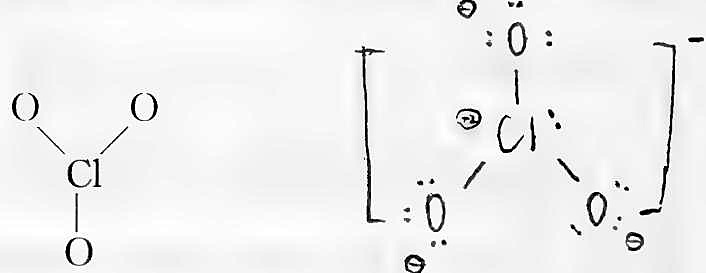 O O
Cl
O
⊖
:O:
[ ]-
+2 Cl:
:O O:
⊖ ⊖